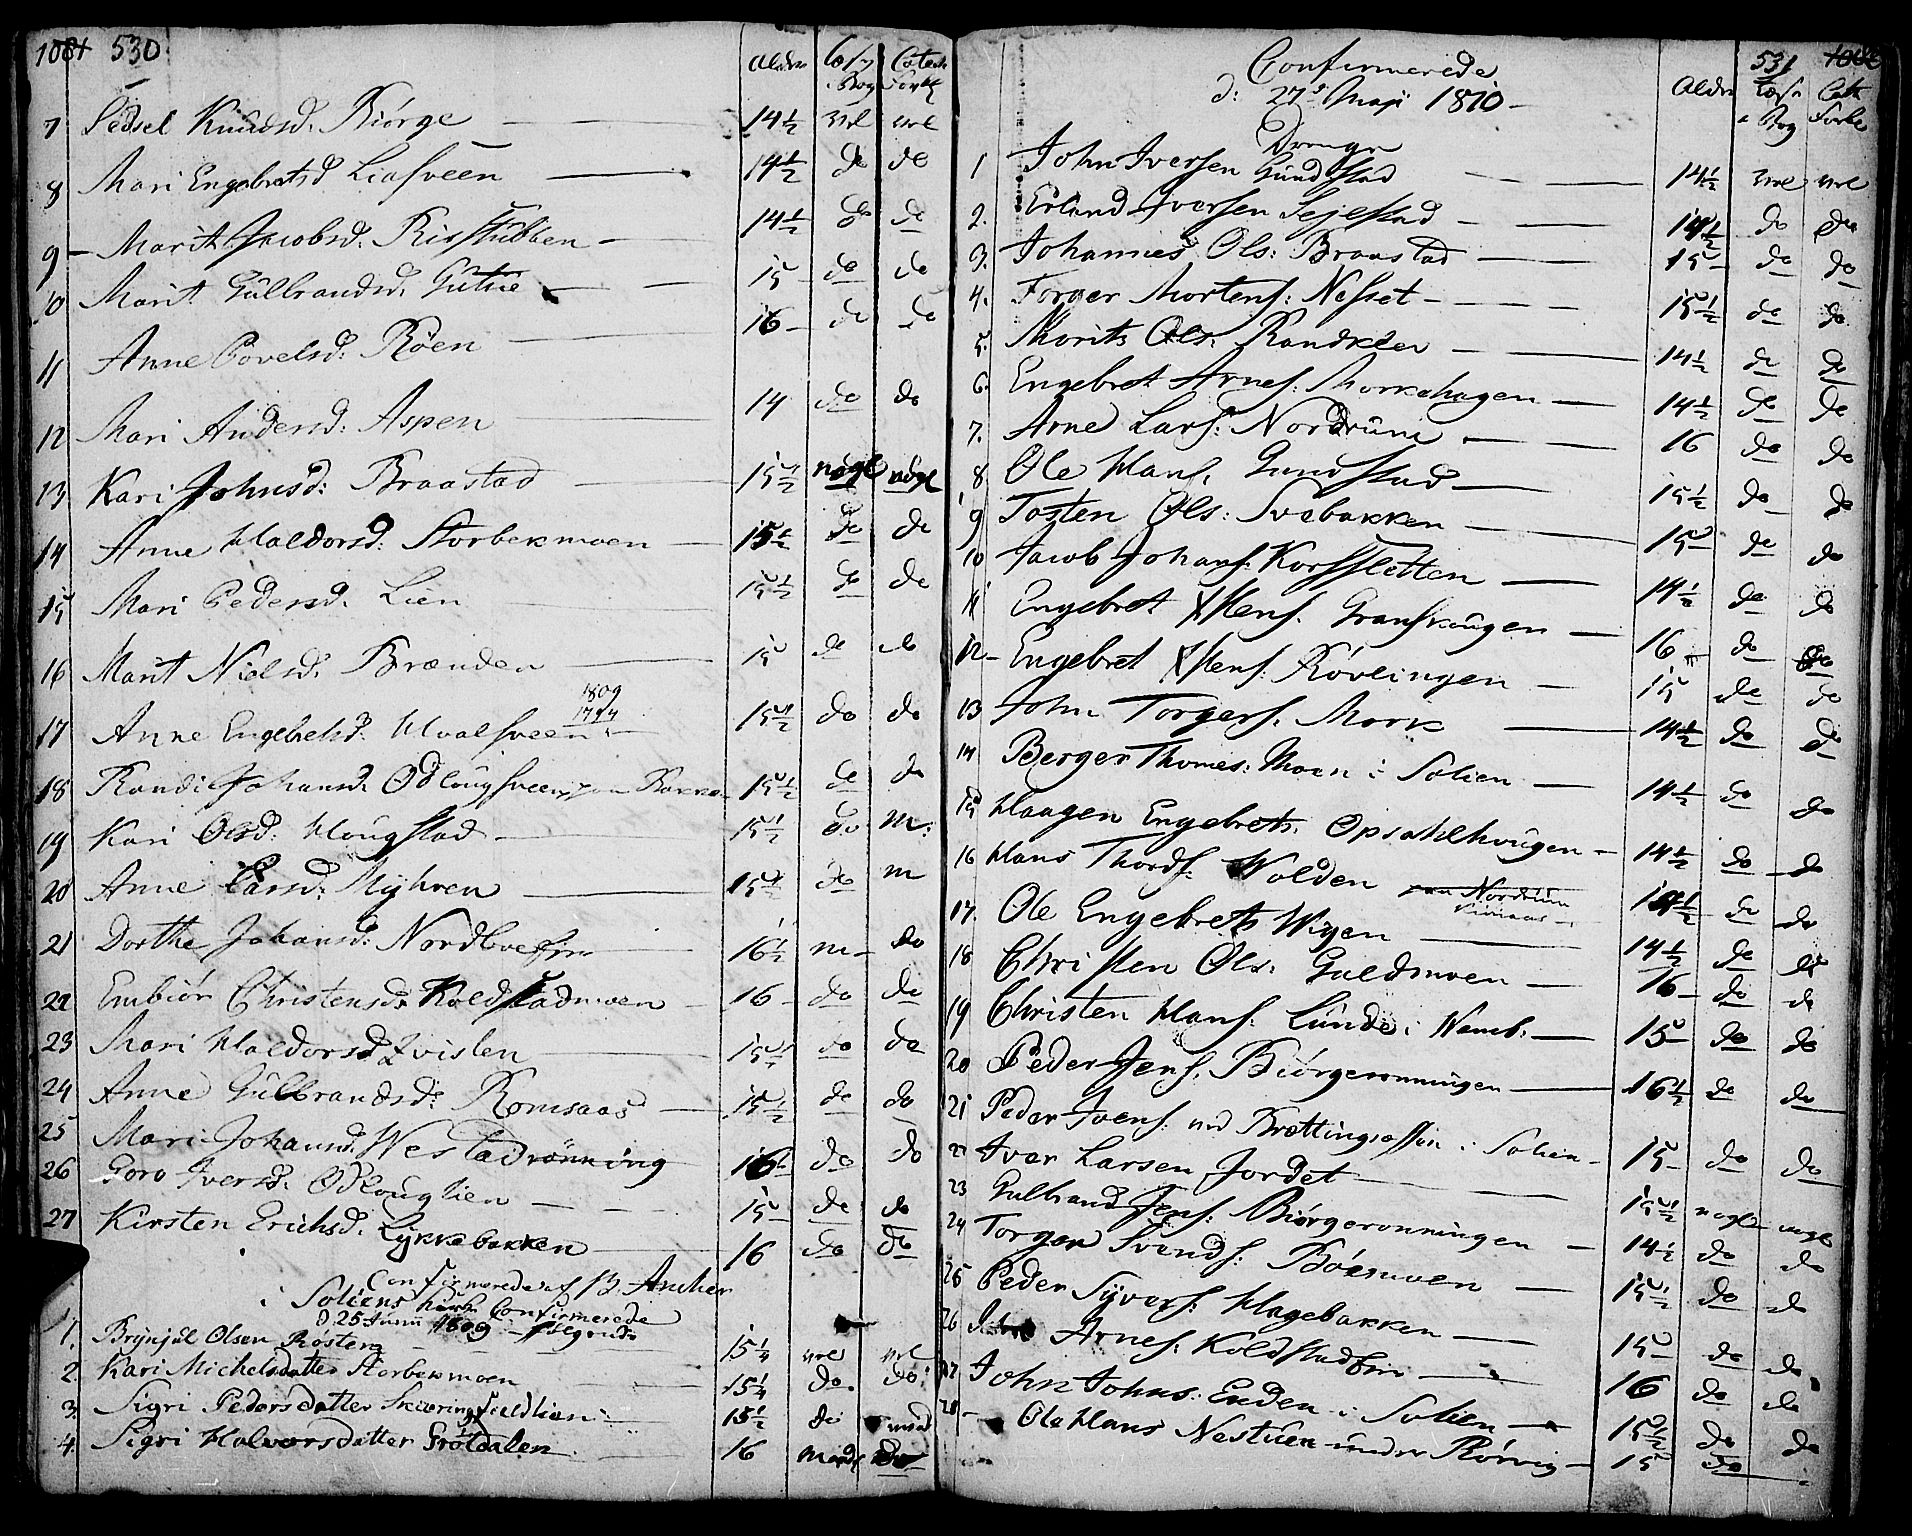 1081 530
Alder Læs i Bog Catech Forkl
7 Sidsel Knudsd. Biørge 14½ vel vel
8 Mari Engebretsd. Liasveen 14½ do do
9 Marit Jacobsd. Risstubben 14½ do do
10 Marit Gulbrandsd. Gutue 15 do do
11 Anne Povelsd: Røen 16 do do
12 Mari Andersd: Aspen 14 do do
13 Kari Johnsd: Braastad 15½ nogl nogl
14 Anne Haldorsd. Storbekmoen 15½ do do
15 Mari Pedersd. Lien 15½ do do
16 Marit Nielsd. Brænden 15 do do
1809
1794
17 Anne Engebretsd. Hvalsveen 15½ do do
18 Randi Johansd. Odlougsveen paa Bakke 15½ do do
19 Kari Olsd: Hougstad 15½ do m:
20 Anne Larsd: Myhren 15½ do m
21 Dorthe Johansd: Nordbue 16½ m do
22 Embiør Christensd. Koldstadmoen 16 do do
23 Mari Haldorsd. Qvislen 15½ do do
24 Anne Gulbrandsd: Romsaas 15½ do do
25 Mari Johansd. Westadrønning 16 do do
26 Goro Iversd. Odlouglien 15 do do
27 Kirsten Erichsd. Lykkebakken 16 do do
Confirmerede af B. Ancher
i Soliens Kirke Confirmerede
d 25 Junii 1809 følgende
1. Brynjul Olsen Røsten 15¼ vel vel
2. Kari Michelsdatter Storbekmoen 15¼ do. do:
3. Sigri Pedersdatter Skiæringfieldlien 15½ do
4. Sigri Halvorsdatter Grøtdalen 16
531
Confirmerede
d: 27de Maji 1810
Alder Læs i Bog Cate Forkl
Drenge
1 John Iversen Gundstad 14½ vel vel
2. Erland Iversen Sejelstad 14½ do do
3. Johannes Ols: Braastad 15 do do
4. Torger Mortens: Nesset 15½ do do
5. Morits Ols: Randklev 14½ do do
6. Engebret Arnes: Morkehagen 14½ do do
7. Arne Lars: Nordrum 16 do do
8 Ole Hans. Gundstad 15½ do do
9 Tosten Ols: Svebakken 15 do do
10 Jacob Johans: Korssletten 14½ do do
11 Engebret Hens. Granskougen 16 do do
12 Engebret Hens: Røvlingen 15 do do
13 John Torgers. Mork 14½ do do
14 Berger Thomes: Moen i Solien 14½ do do
15 Haagen Engebrets. Opsahlhougen 14½ do do
16 Hans Thords: Wolden 14½ do do
17. Ole Engebrets Wigen 14½ do do
18 Christen Ols: Guldmoen 16 do do
19 Christen Hans: Lunde i Wameb: 15 do do
20 Peder Jens. Biørgeronningen 16½ do do
21 Peder Ivers: ved Brættingsossen i Solien 15 do do
22 Iver Larsen Jordet 15½ nogl nogl
23 Gulbrand Jens: Biørgeronningen 14½ do do
24 Torger Svends: Bøemoen 15½ do do
25 Peder Syvers: Hagebakken 15 do do
26 Arnes: Koldstad 16 do do
27 John Johns: Enden i Solien 15½ do do
28 Ole Hans Nestuen under Rørvig 15 do